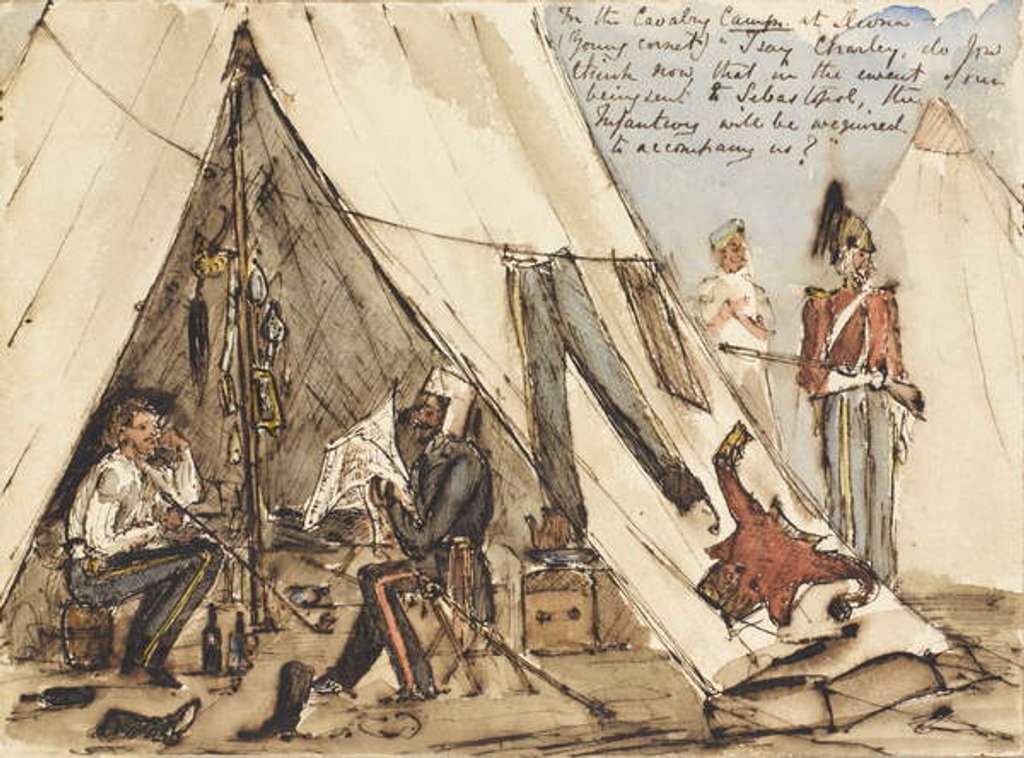 In the Cavalry Camp at Devna
(Young cornet) "I say Charley, do you
think now, that in the event of our
being sent to Sebastopol, the
Infantwy will be wequired
to accompany us?"